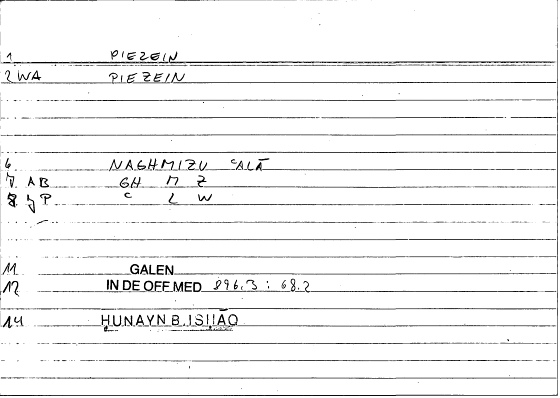 1 PIEZEIN
2 WA PIEZEIN
6 NAGHMIZU ʿALĀ
7 AB GH M Z
8 JP ʿ L W
11 GALEN
12 IN DE OFF MED 896.3 : 68.2
14 ḤUNAYN B. ISḤĀQ